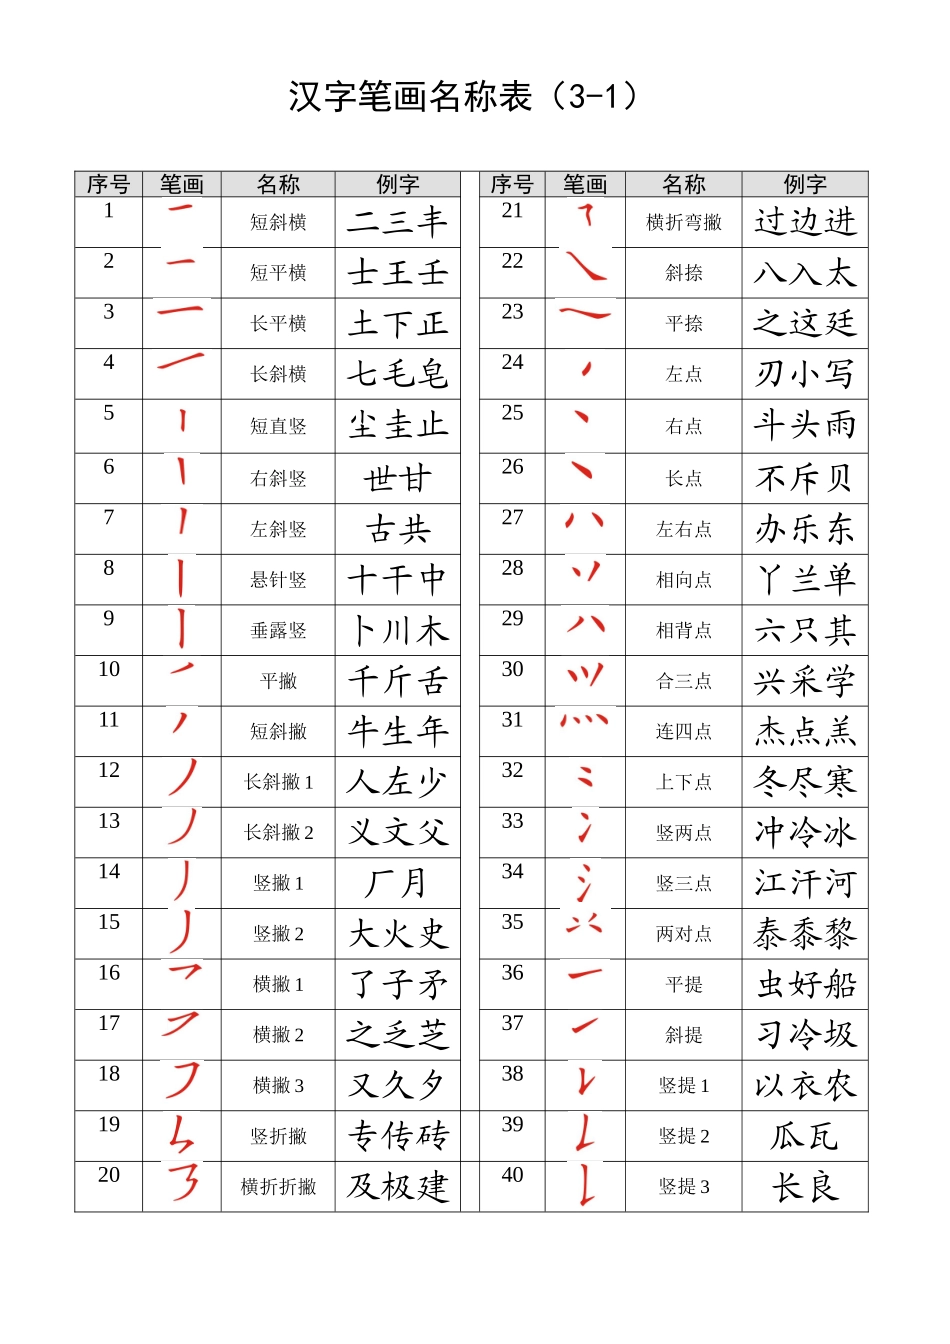 汉字笔画名称表（3-1）
序号 笔画 名称 例字 序号 笔画 名称 例字
1 短斜横 二三丰 21 横折弯撇 过边进
2 短平横 士王壬 22 斜捺 八入太
3 长平横 土下正 23 平捺 之这廷
4 长斜横 七毛皂 24 左点 刃小写
5 短直竖 尘圭止 25 右点 斗头雨
6 右斜竖 世甘 26 长点 不斥贝
7 左斜竖 古共 27 左右点 办乐东
8 悬针竖 十干中 28 相向点 丫兰单
9 垂露竖 卜川木 29 相背点 六只其
10 平撇 千斤舌 30 合三点 兴采学
11 短斜撇 牛生年 31 连四点 杰点羔
12 长斜撇 1 人左少 32 上下点 冬尽寒
13 长斜撇 2 义文父 33 竖两点 冲冷冰
14 竖撇 1 厂月 34 竖三点 江汗河
15 竖撇 2 大火史 35 两对点 泰黍黎
16 横撇 1 了子矛 36 平提 虫好船
17 横撇 2 之乏芝 37 斜提 习冷圾
18 横撇 3 又久夕 38 竖提 1 以衣农
19 竖折撇 专传砖 39 竖提 2 瓜瓦
20 横折折撇 及极建 40 竖提 3 长良